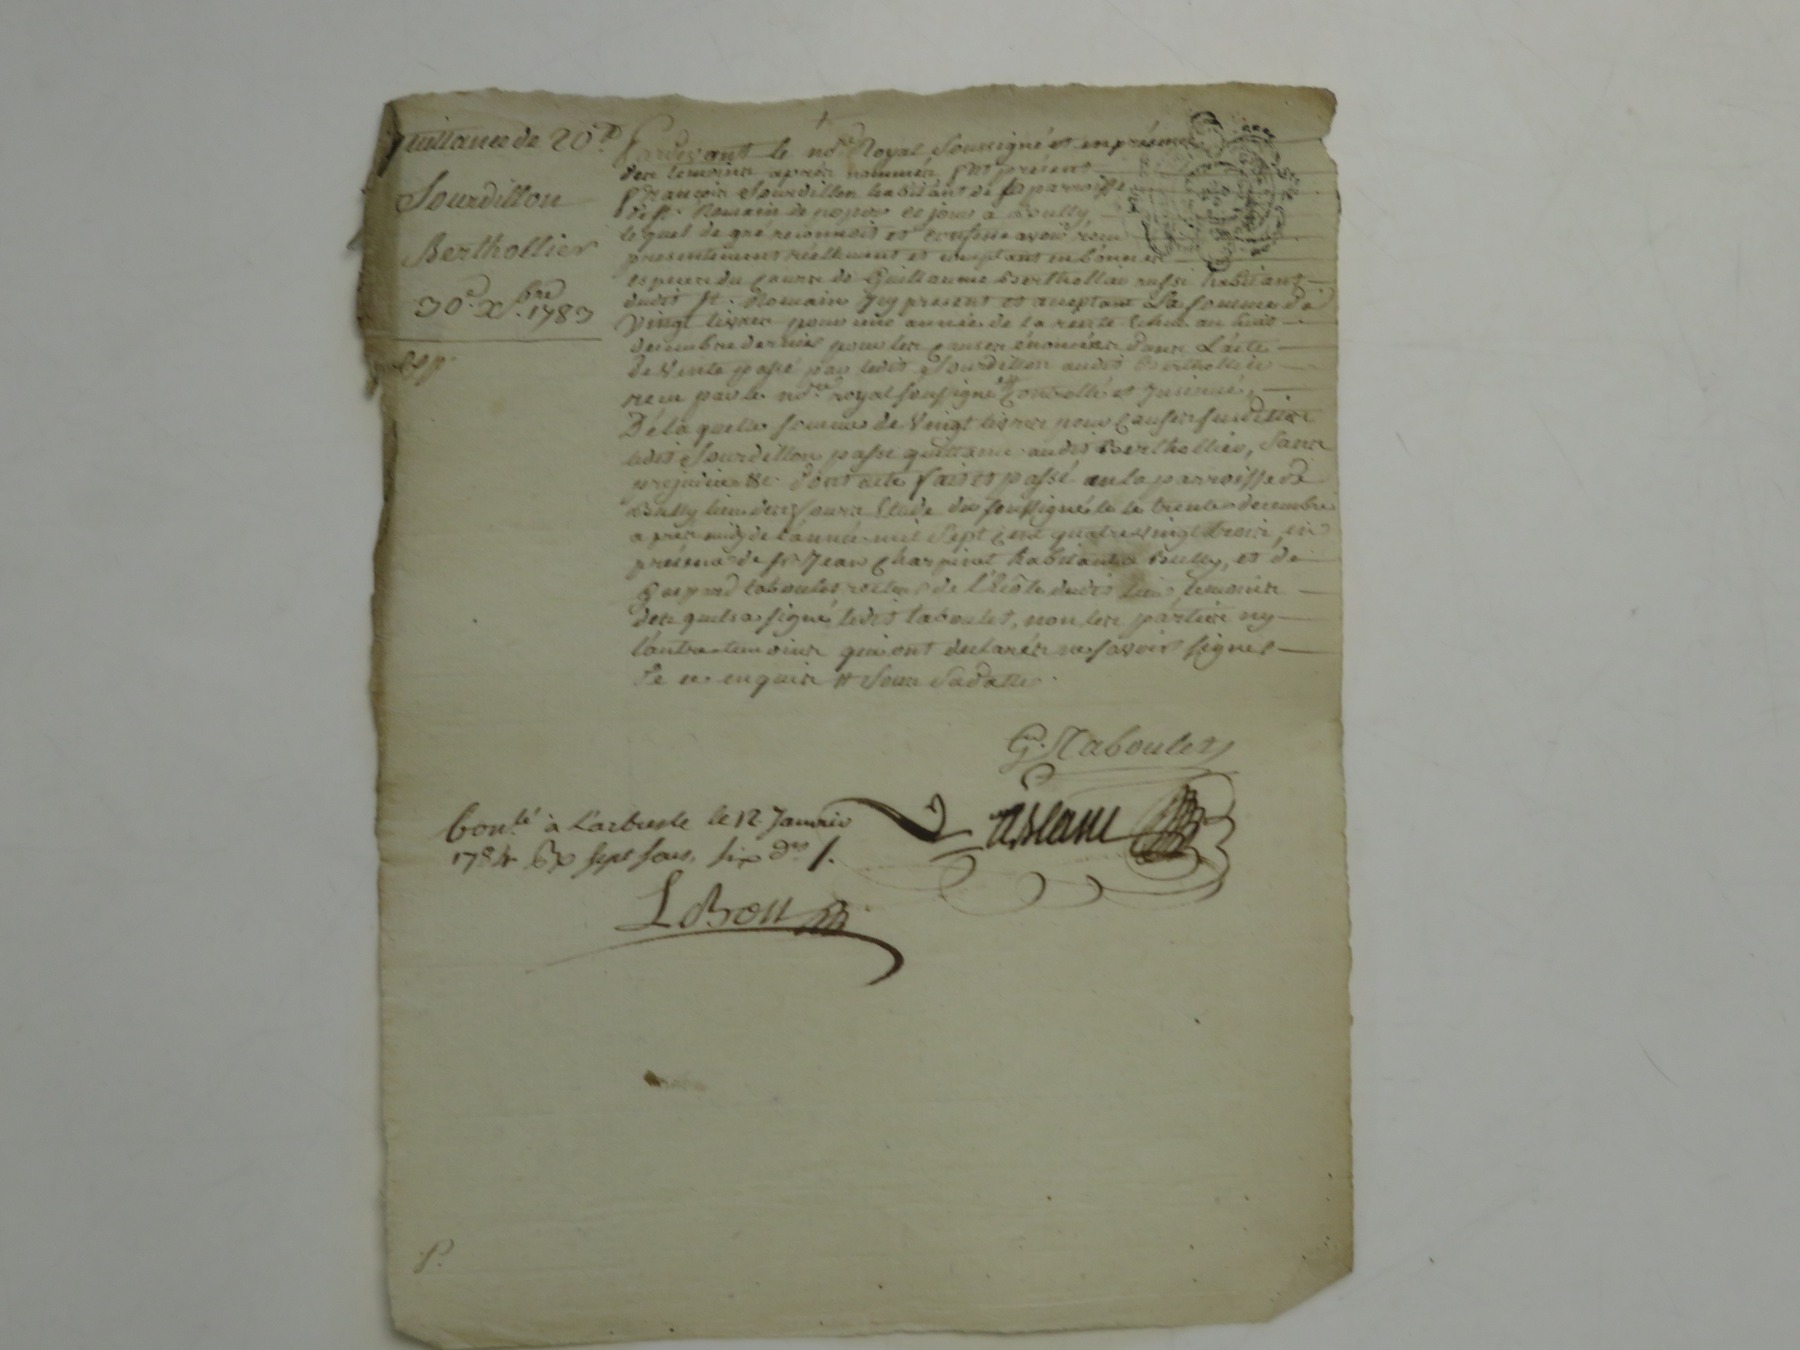 quittance de 20 ll
Sourdillon
Berthollier
30e Xbre 1783
Pardevant le nore Royal Soussigné et en présence
des temoins après nommés, fut présent
françois Sourdillon habitant de la parroisse
de St. Romain de popés de jour a Bully,
lequel de gré reconnoit et confesse avoir reçu
presentement réellement et comptant en bonnes
especes du cours de Guillaume Berthollier aussi habitant
dudit St. Romain Icy present et acceptant La somme de
Vingt livres pour une année de la rente echue au huit
decembre dernier pour les causes énoncées dans L'acte
de Vente passé par ledit Sourdillon audit Berthollier
reçu par le nore royal soussigné Controllé et Insinué,
De laquelle somme de Vingt livres pour Causes susdites
ledit Sourdillon passe quittance audit Berthollier, Sans
prejudice &c. dont acte fait et passé en la parroisse de
Bully lieu des Fours Etude du soussigné le trente decembre
après midy de l'année mil Sept cent quatre vingt trois, en
présence de sr. Jean Charpinel habitant a Bully, et de
Gaspard taboulet recteur de l'école dudit lieu, temoins
desquels a signé ledit taboulet, non les parties ny
l'autre temoins qui ont declarés ne savoir signer
de ce enquis et Sous Sadatte.
G. Taboulet
Conlé à L'arbresle le 12 Janvier
1784 Rx sept sous, six drs
LeBon
P.